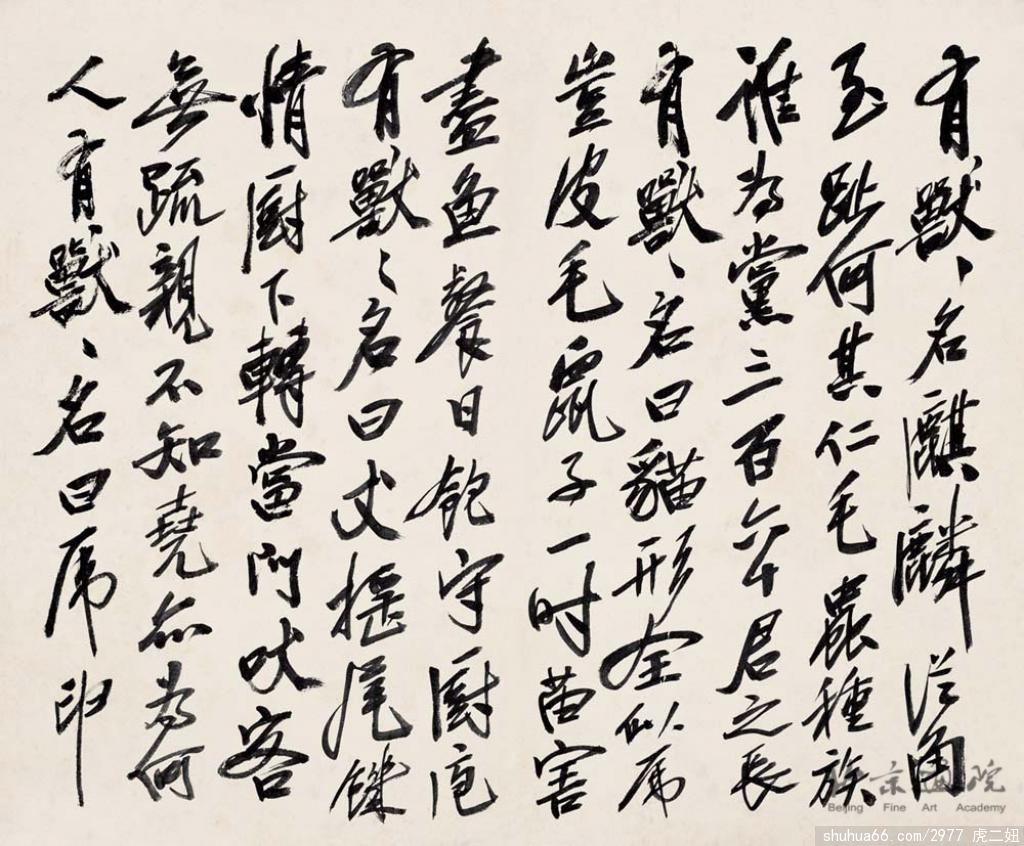 有獸、名麒麟從角
至趾何其仁毛蟲種族
誰為黨三百六十君之長
有獸、名曰貓形全似虎
豈皮毛鼠子一時苗害
盡魚餐日飽守廚庖
有獸、名曰犬搖尾饞
情廚下轉當門吠客
無疏親不知堯亦為何
人有獸、名曰虎印
北京畫院
Beijing Fine Art Academy
shuhua66.com/2977 虎二妞